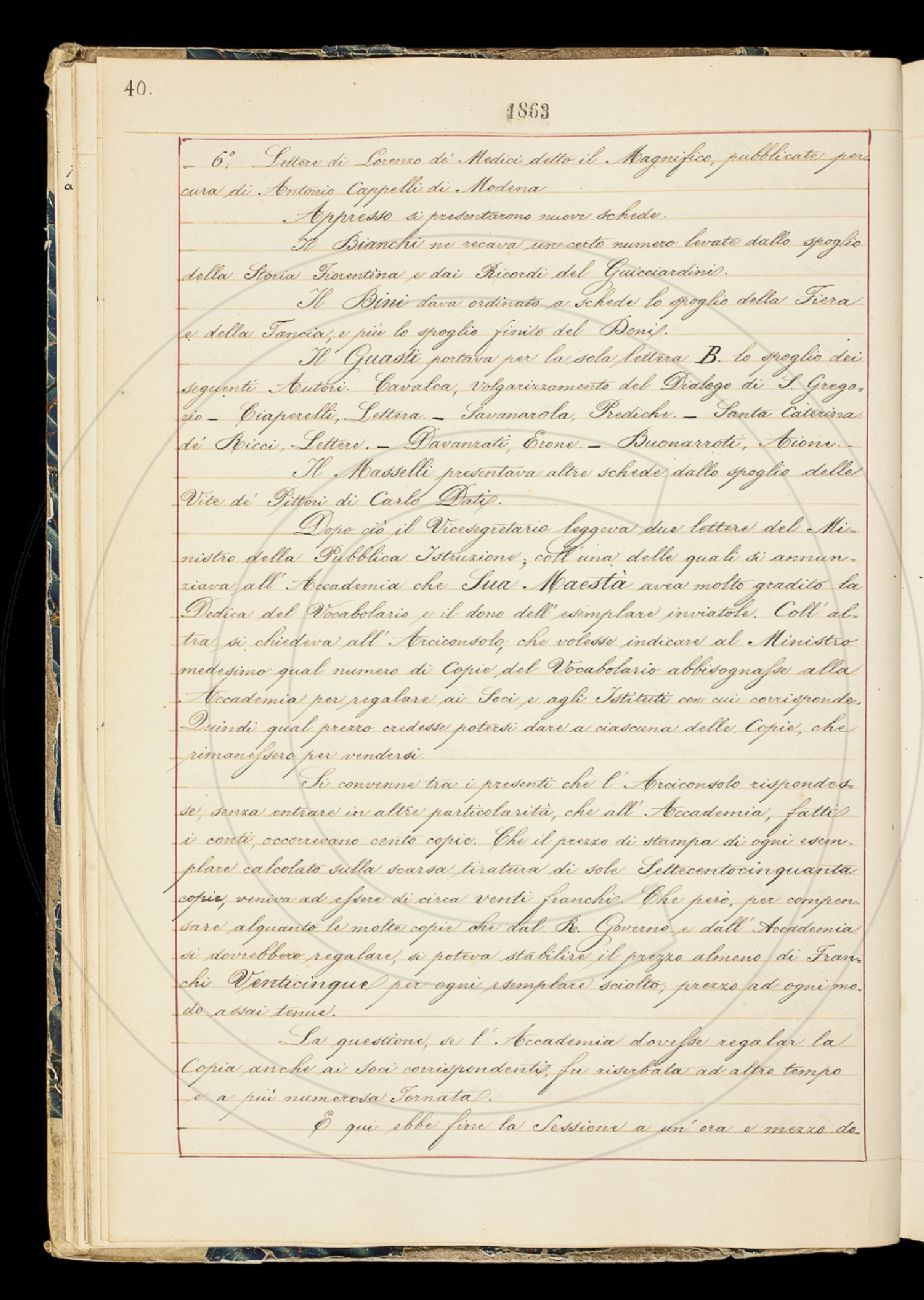 40.
1863
6.° Lettere di Lorenzo de' Medici detto il Magnifico, pubblicate per
cura di Antonio Cappelli di Modena
Appresso si presentarono nuove schede.
Il Bianchi ne recava un certo numero levate dallo spoglio
della Storia Fiorentina e dai Ricordi del Guicciardini.
Il Bini dava ordinato a schede lo spoglio della Fiera
e della Tancia, e più lo spoglio finito del Doni.
Il Guasti portava per la sola lettera B. lo spoglio dei
seguenti Autori. Cavalca, Volgarizzamento del Dialogo di S. Grego-
rio — Ciaperelli, Lettera. — Savanarola, Prediche. — Santa Caterina
de' Ricci, Lettere. — Davanzati, Erone. — Buonarroti, Aione. —
Il Masselli presentava altre schede dallo spoglio delle
Vite de' Pittori di Carlo Dati.
Dopo ciò il Vicesegretario leggeva due lettere del Mi-
nistro della Pubblica Istruzione; coll'una delle quali si annun-
ziava all'Accademia che Sua Maestà avea molto gradito la
Dedica del Vocabolario e il dono dell'esemplare inviatole. Coll'al-
tra si chiedeva all'Arciconsolo, che volesse indicare al Ministro
medesimo qual numero di Copie del Vocabolario abbisognasse alla
Accademia per regalare ai Soci e agli Istituti con cui corrisponde.
Quindi qual prezzo credesse potersi dare a ciascuna delle Copie, che
rimanessero per vendersi.
Si convenne tra i presenti che l'Arciconsolo rispondes-
se, senza entrare in altre particolarità, che all'Accademia, fatti
i conti, occorrevano cento copie. Che il prezzo di stampa di ogni esem-
plare calcolato sulla scarsa tiratura di sole Settecentocinquanta
copie, veniva ad essere di circa venti franchi. Che però, per compen-
sare alquanto le molte copie che dal R. Governo e dall'Accademia
si dovrebbero regalare, si poteva stabilire il prezzo almeno di Fran-
chi Venticinque per ogni esemplare sciolto; prezzo ad ogni mo-
do assai tenue.
La questione, se l'Accademia dovesse regalar la
Copia anche ai Soci corrispondenti, fu riserbata ad altro tempo
e a più numerosa Tornata.
E qui ebbe fine la Sessione a un'ora e mezzo do-